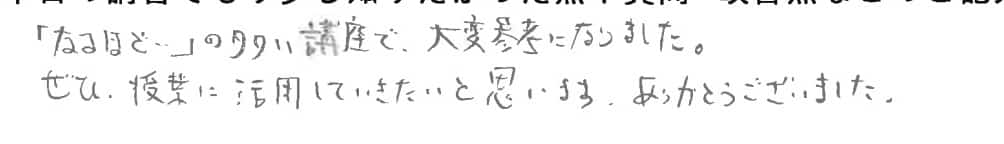 「なるほど…」の多い講座で、大変参考になりました。
ぜひ、授業に活用していきたいと思います、ありがとうございました。